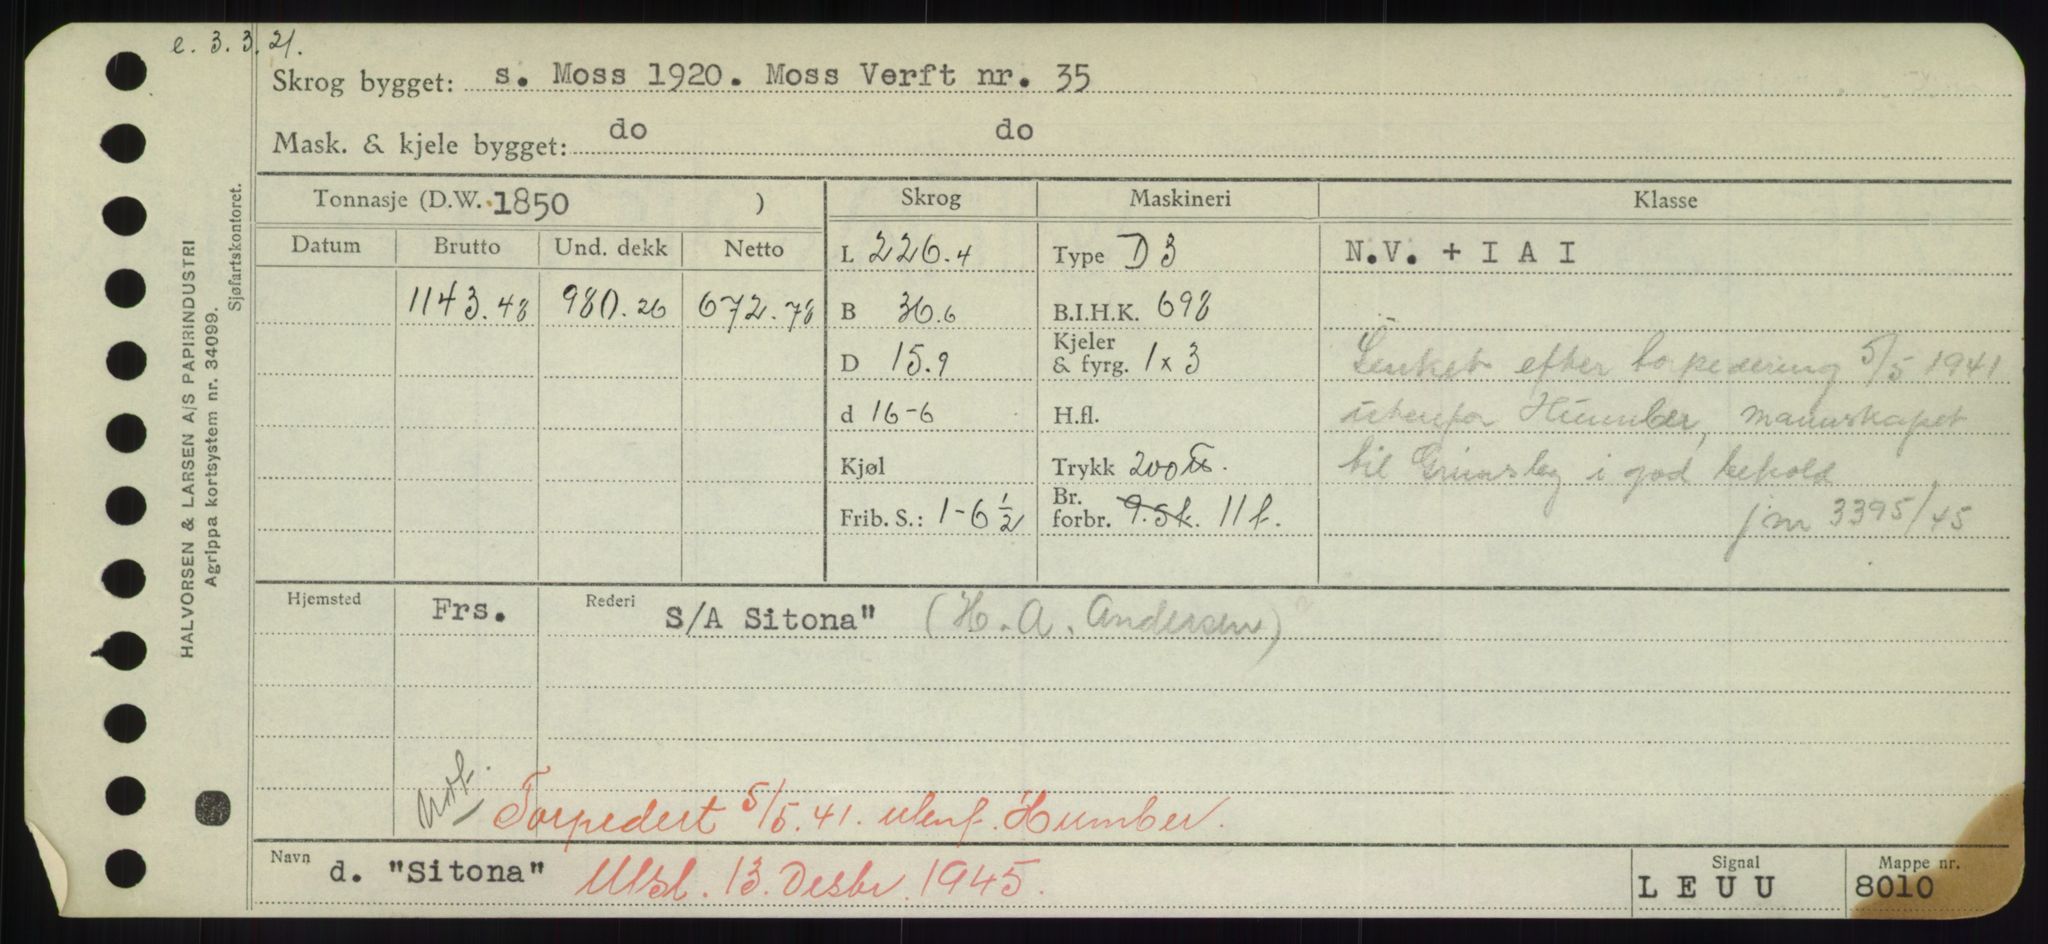 e. 3. 3. 21.
Skrog bygget: s. Moss 1920. Moss Verft nr. 35
Mask. & kjele bygget: do do
Tonnasje (D.W. 1850 ) Skrog Maskineri Klasse
Datum Brutto Und. dekk Netto L 226.4 Type D 3 N.V. + I A I
1143.48 980.26 672.78 B 36.6 B.I.H.K. 698
D 15.9 Kjeler & fyrg. 1 x 3 Senket efter torpedering 5/5 1941
d 16-6 H.fl. utenfor Humber, mannskapet
Kjøl Trykk 200 til Grimsby i god behold
Frib. S.: 1-6 1/2 Br. forbr. 9.5k. 11 t. jnr 3395/45
Hjemsted Frs. Rederi S/A Sitona" (H. A. Andersen)
Torpedert 5/5.41. utenf. Humber.
Navn d. "Sitona" Utsl. 13. Desbr. 1945. Signal L E U U Mappe nr. 8010
HALVORSEN & LARSEN A/S PAPIRINDUSTRI
Agrippa kortsystem nr. 34099.
Sjøfartskontoret.